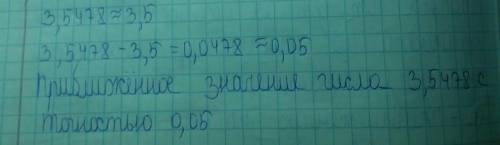 3,5478≈3,5
3,5478-3,5=0,0478≈0,05
Приближённое значение числа 3,5478 с
точностью 0,05